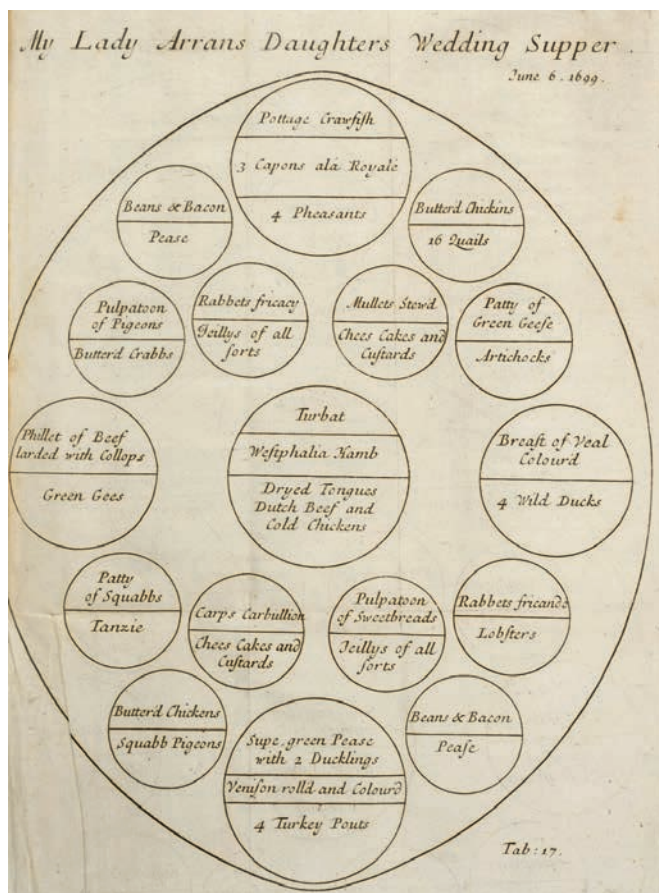 My Lady Arrans Daughters Wedding Supper.
June 6. 1699.
Pottage Crawfish
3 Capons ala Royale
4 Pheasants
Beans & Bacon
Pease
Butterd Chickins
16 Quails
Pulpatoon
of Pigeons
Butterd Crabbs
Rabbets fricacy
Jeillys of all
sorts
Mullets Stewd
Chees Cakes and
Custards
Patty of
Green Geese
Artichocks
Phillet of Beef
larded with Collops
Green Gees
Turbat
Westphalia Hamb
Dryed Tongues
Dutch Beef and
Cold Chickens
Breast of Veal
Colourd
4 Wild Ducks
Patty
of Squabbs
Tanzie
Carps Carbullion
Chees Cakes and
Custards
Pulpatoon
of Sweetbreads
Jeillys of all
sorts
Rabbets fricandè
Lobsters
Butterd Chickens
Squabb Pigeons
Supe, green Pease
with 2 Ducklings
Venison rolld and Colourd
4 Turkey Pouts
Beans & Bacon
Pease
Tab: 17.